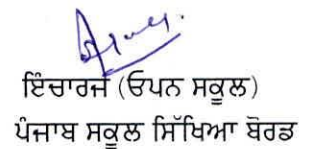 ਇੰਚਾਰਜ (ਓਪਨ ਸਕੂਲ)
ਪੰਜਾਬ ਸਕੂਲ ਸਿੱਖਿਆ ਬੋਰਡ